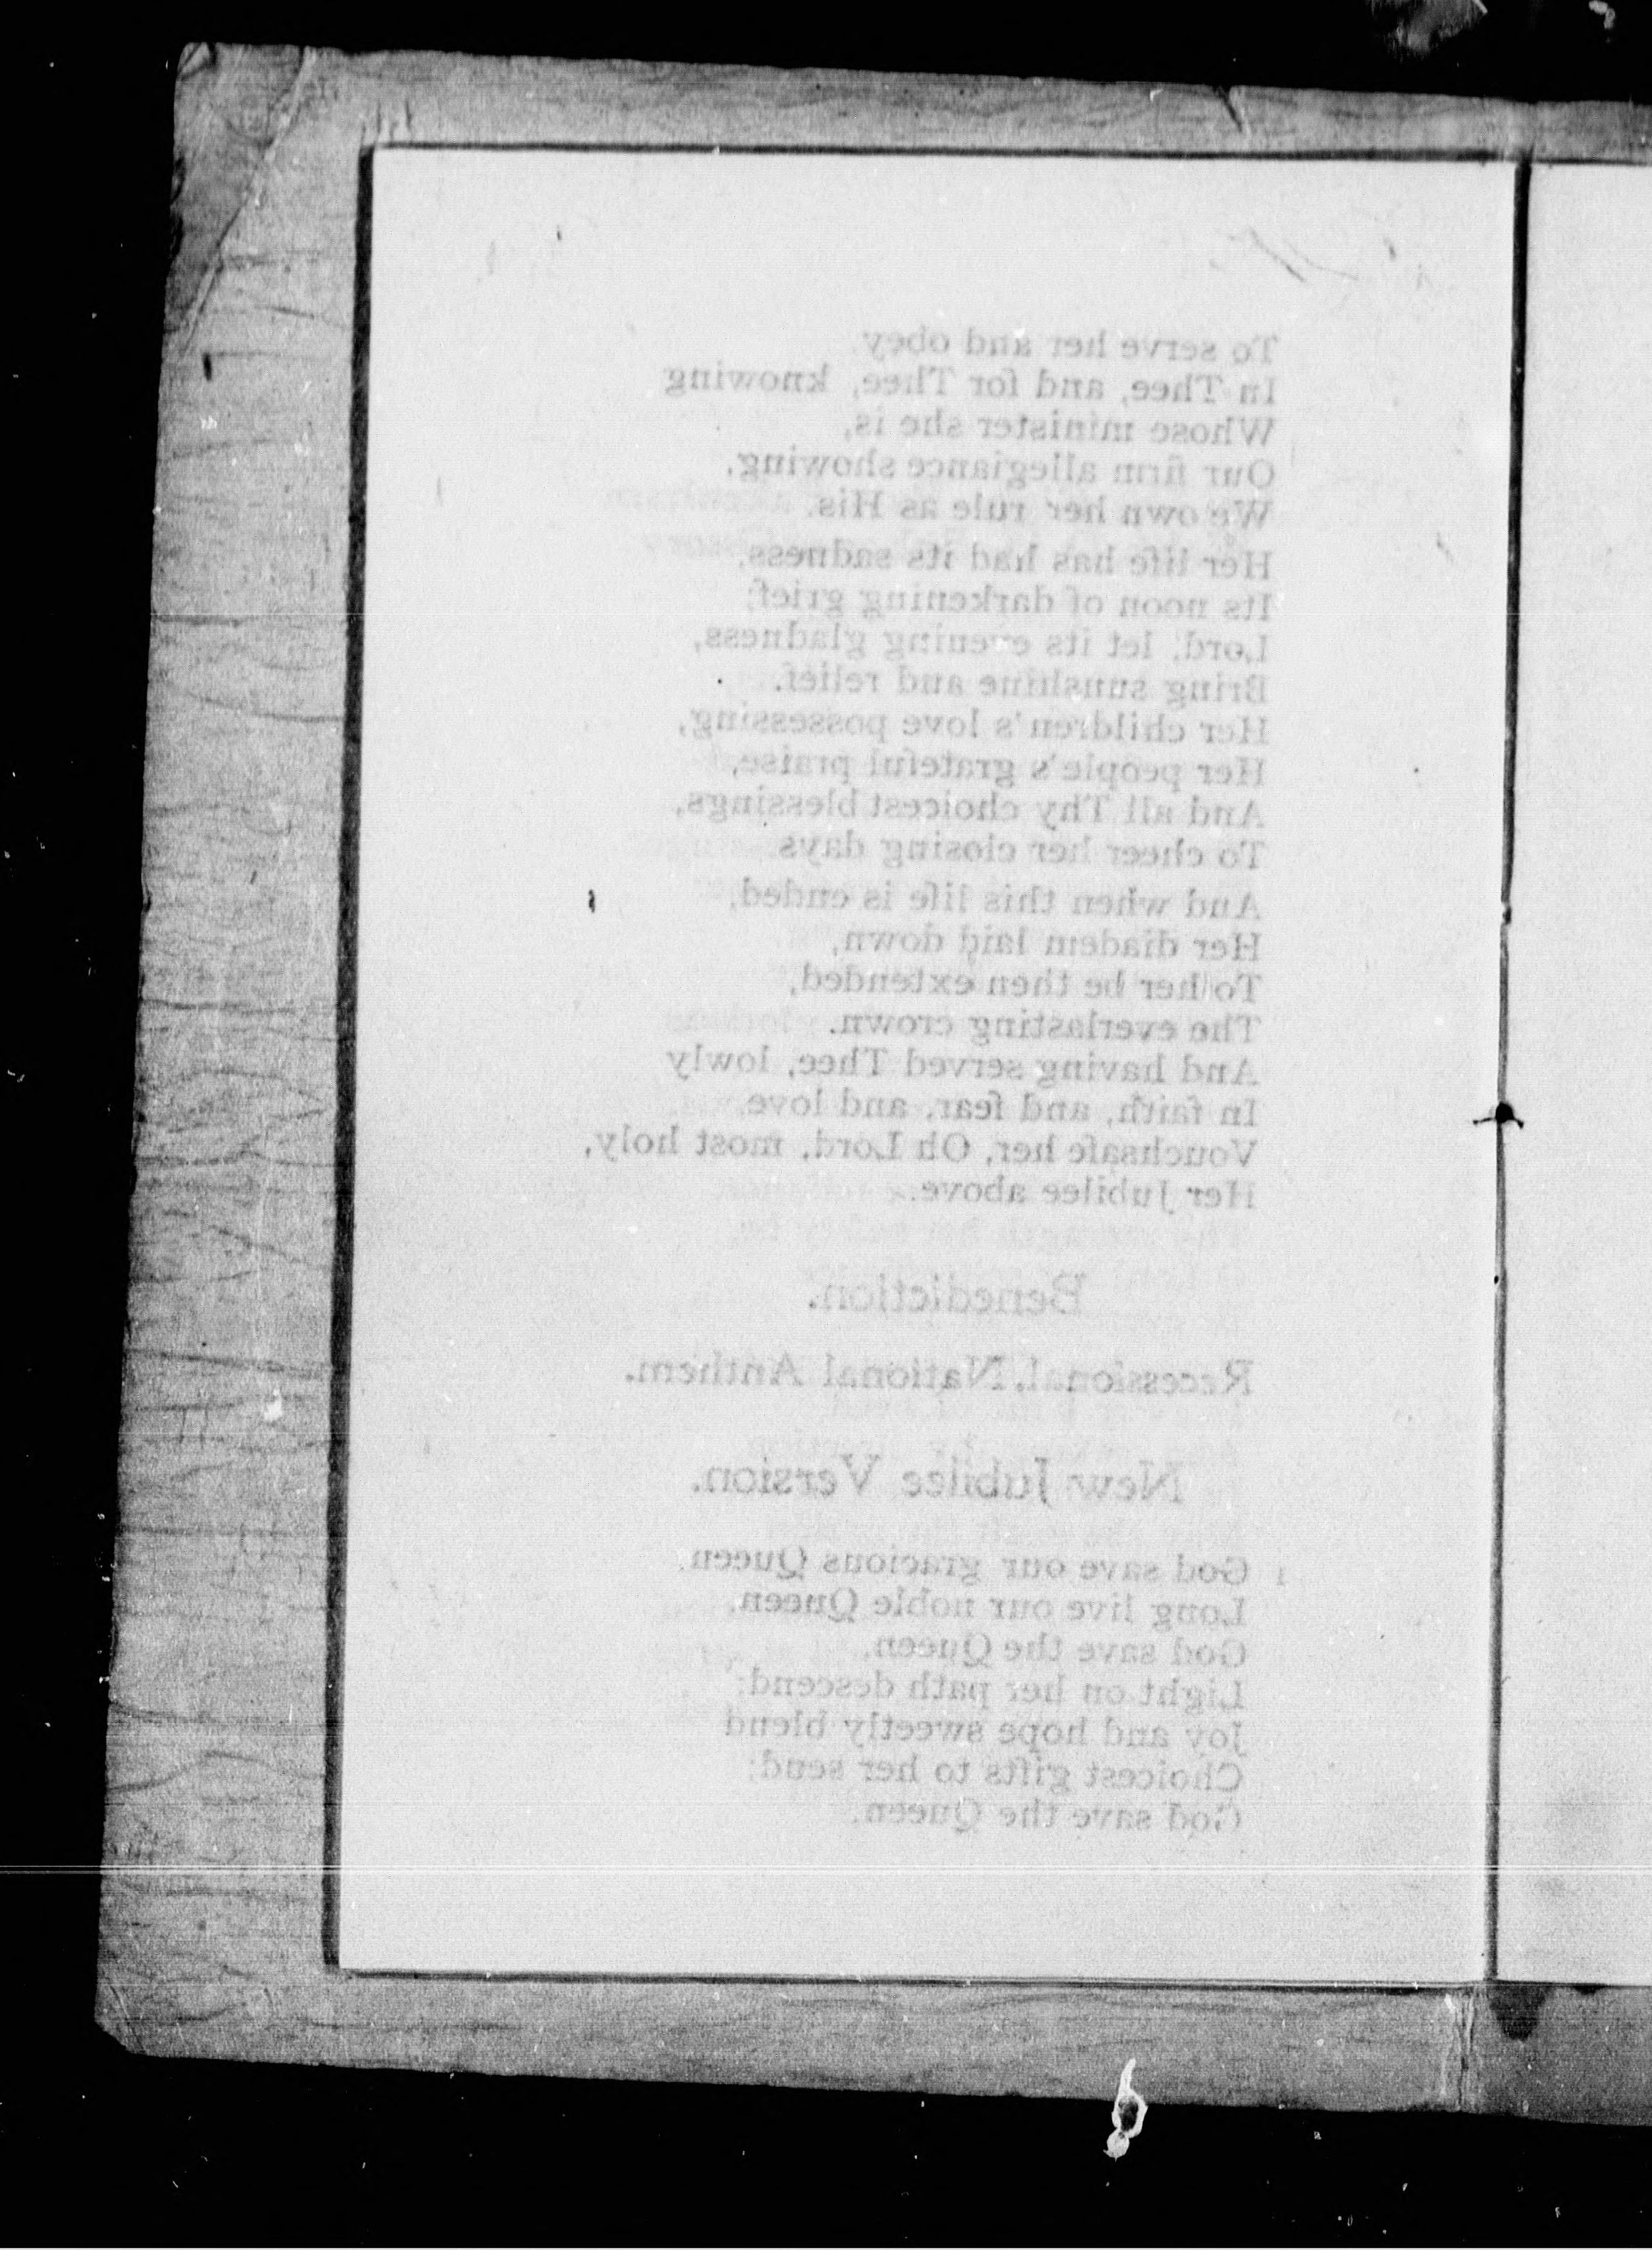 To serve her and obey.
In Thee, and for Thee, knowing
Whose minister she is,
Our firm allegiance showing,
We own her rule as His.
Her life has had its sadness,
Its noon of darkening grief;
Lord, let its evening gladness,
Bring sunshine and relief.
Her children's love possessing,
Her people's grateful praise,
And all Thy choicest blessings,
To cheer her closing days.
And when this life is ended,
Her diadem laid down,
To her be then extended,
The everlasting crown.
And having served Thee, lowly
In faith, and fear, and love,
Vouchsafe her, Oh Lord, most holy,
Her Jubilee above.
Benediction.
Recessional, National Anthem.
New Jubilee Version.
1 God save our gracious Queen,
Long live our noble Queen,
God save the Queen.
Light on her path descend;
Joy and hope sweetly blend
Choicest gifts to her send;
God save the Queen.